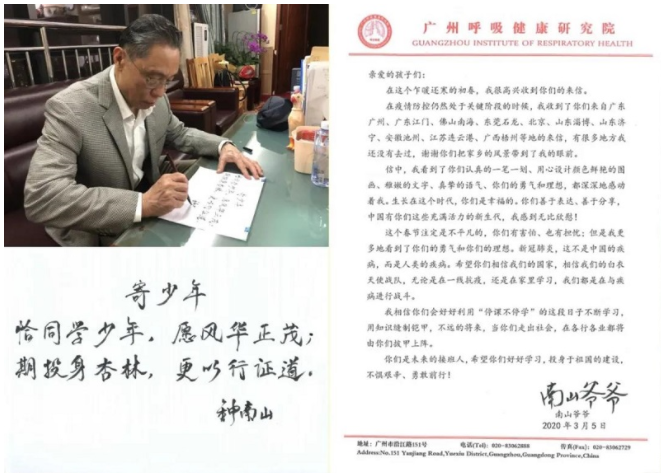 寄少年
恰同学少年，愿风华正茂；
期投身杏林，更以行证道。
钟南山
广州呼吸健康研究院
GUANGZHOU INSTITUTE OF RESPIRATORY HEALTH
亲爱的孩子们：
在这个乍暖还寒的初春，我很高兴收到你们的来信。
在疫情防控仍然处于关键阶段的时候，我收到了你们来自广东
广州、广东江门、佛山南海、东莞石龙、北京、山东淄博、山东济
宁、安徽池州、江苏连云港、广西梧州等地的来信，有很多地方我
还没有去过，谢谢你们把家乡的风景带到了我的眼前。
信中，我看到了你们认真的一笔一划、用心设计颜色鲜艳的图
画、稚嫩的文字、真挚的语气、你们的勇气和理想，都深深地感动
着我。生长在这个时代，你们是幸福的。你们善于表达、善于分享，
中国有你们这些充满活力的新生代，我感到无比欣慰！
这个春节注定是不平凡的，你们有害怕、也有担忧；但是我更
多地看到了你们的勇气和你们的理想。新冠肺炎，这不是中国的疾
病，而是人类的疾病。希望你们相信我们的国家，相信我们的白衣
天使战队，无论是在一线抗疫，还是在家里学习，我们都是在与疾
病进行战斗。
我相信你们会好好利用“停课不停学”的这段日子不断学习，
用知识缝制铠甲，不远的将来，当你们走出社会，在各行各业都将
由你们披甲上阵。
你们是未来的接班人，希望你们好好学习，投身于祖国的建设，
不惧艰辛、勇敢前行！
南山爷爷
南山爷爷
2020年3月5日
地址：广州市沿江路151号 电话(Tel)：020-83062888 传真(Fax)：020-83062729
Address:No.151 Yanjiang Road,Yuexiu District,Guangzhou,Guangdong Province,China